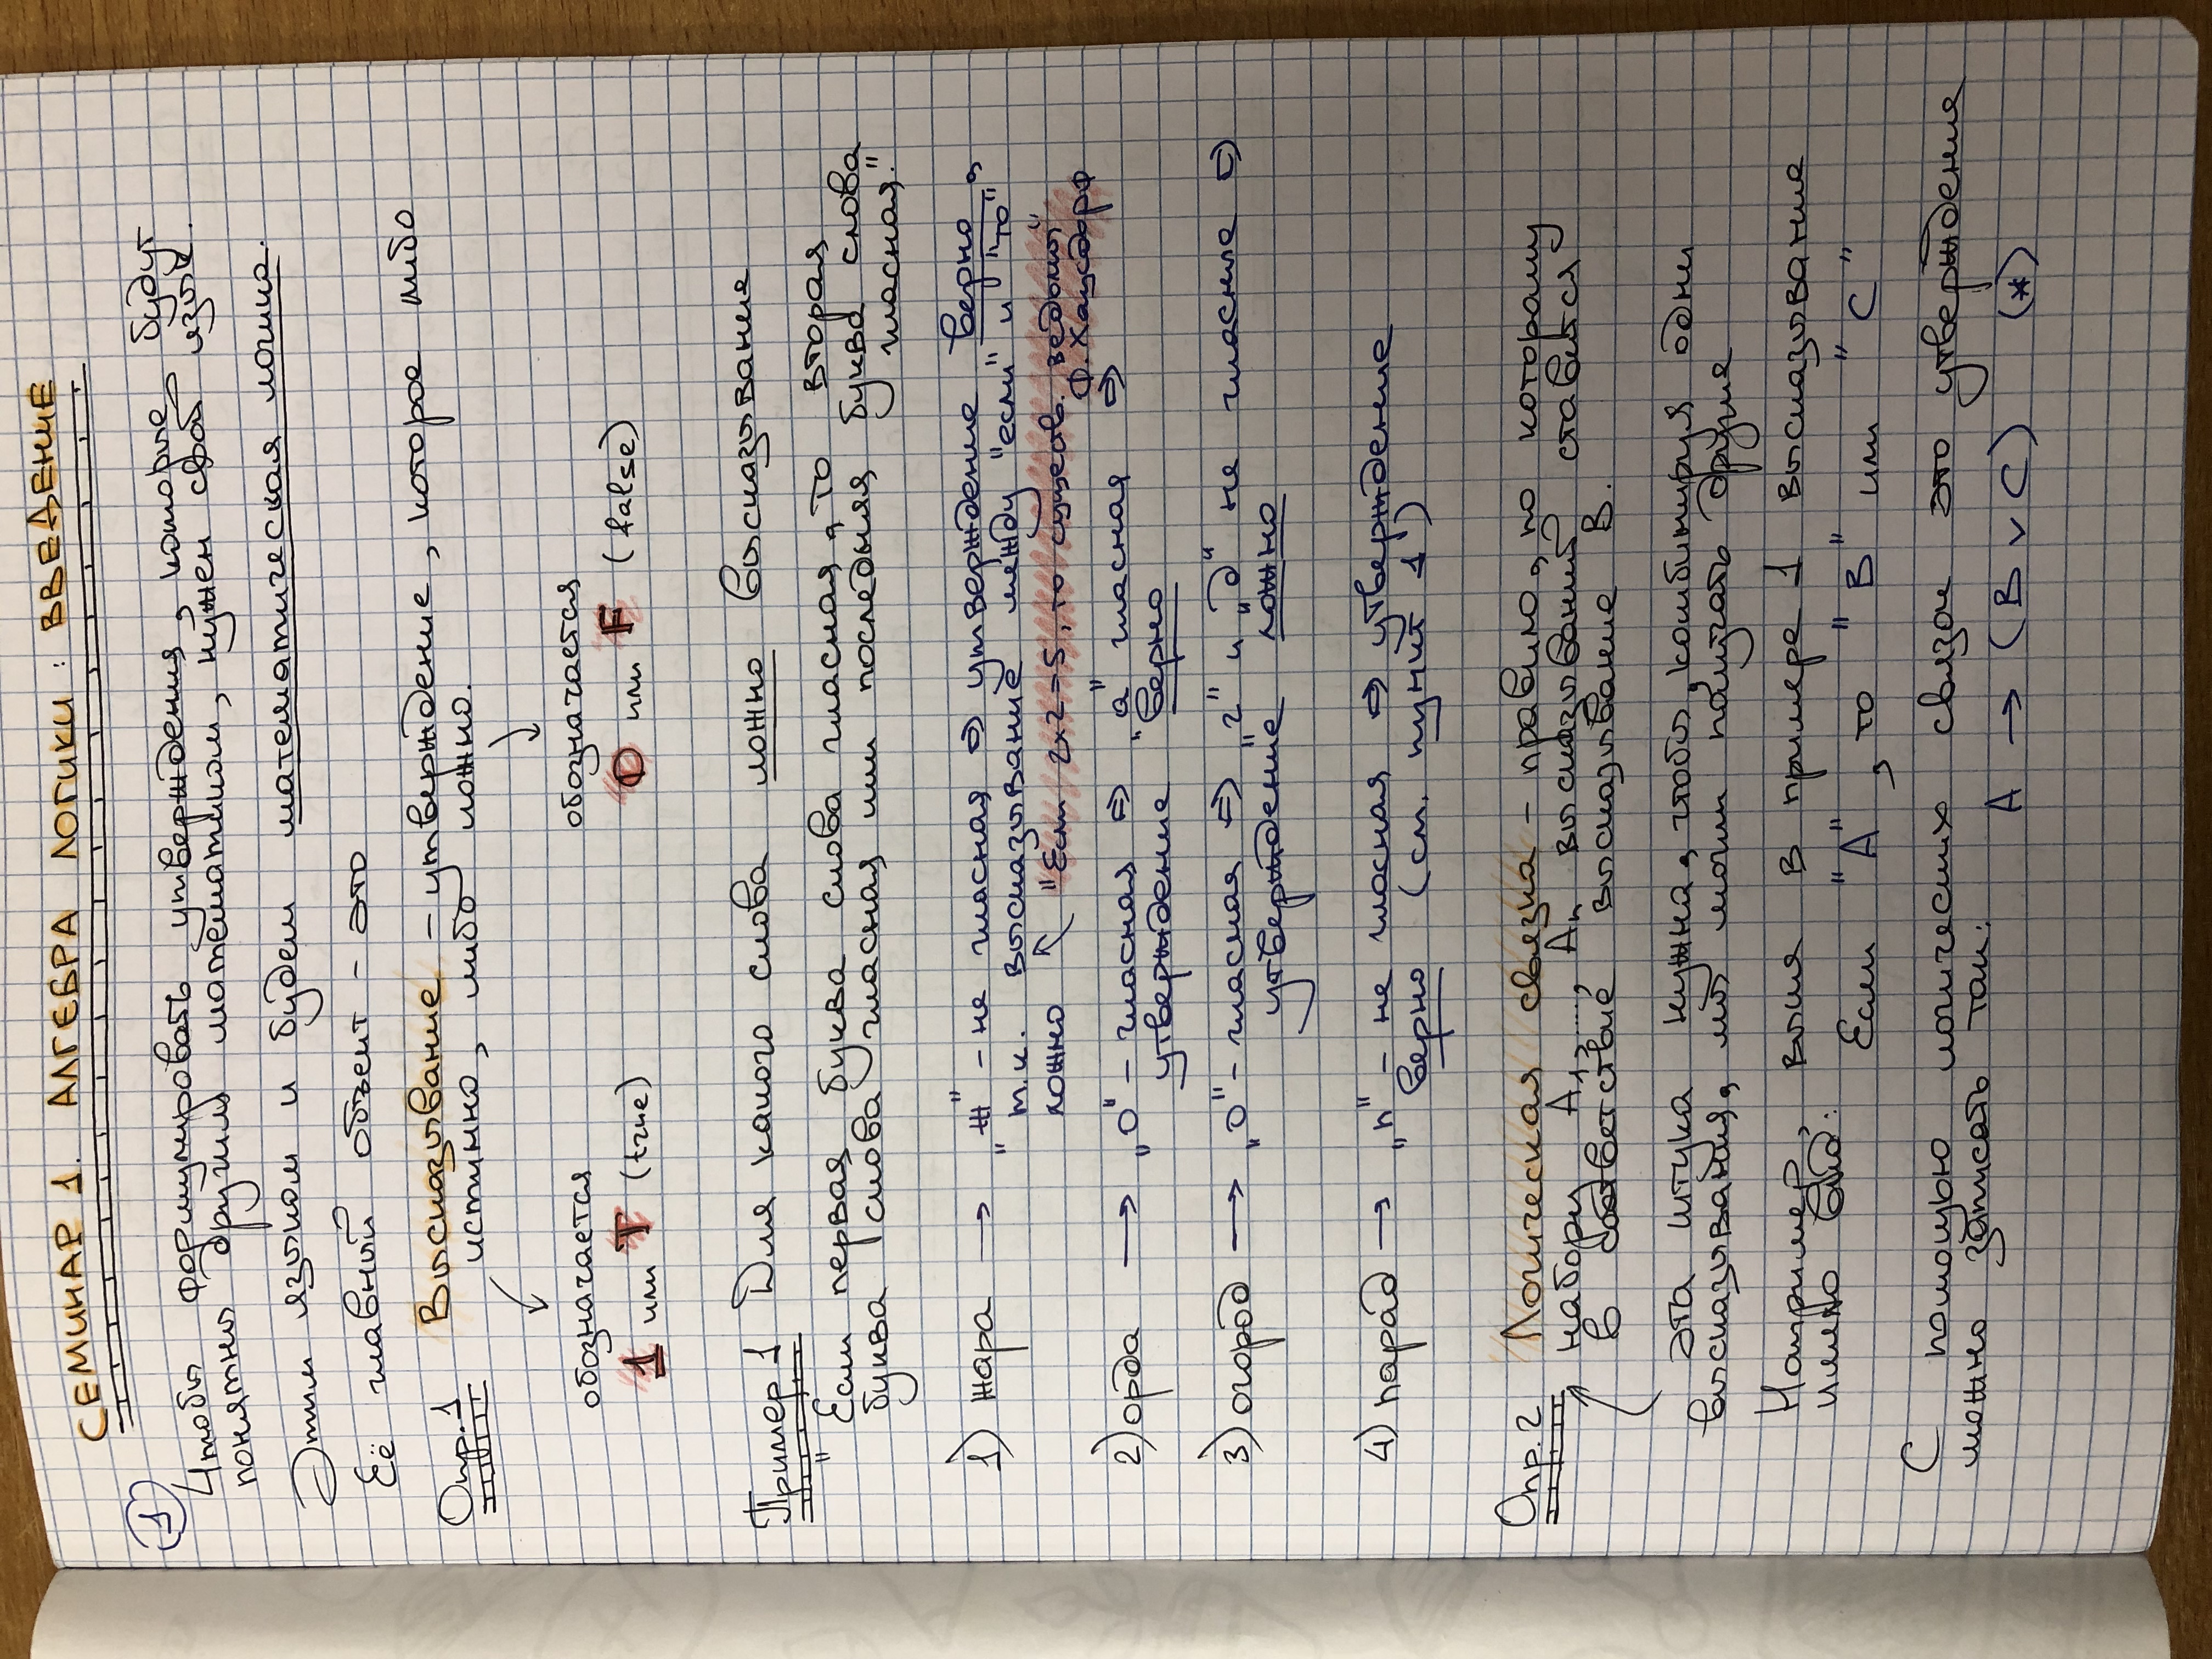 СЕМИНАР 1. АЛГЕБРА ЛОГИКИ: ВВЕДЕНИЕ
1
Чтобы формулировать утверждения, которые будут
понятны другим математикам, нужен свой язык.
Этим языком и будет математическая логика.
Её главный объект - это
Опр.1 Высказывание - утверждение, которое либо
истинно, либо ложно.
обозначается обозначается
1 или T (true) 0 или F (false)
Пример 1 Для какого слова ложно высказывание
"Если первая буква слова гласная, то вторая
буква слова гласная или последняя буква слова
гласная."
1) жара → "ж" - не гласная ⇒ утверждение верно,
т.к. высказывание между "если" и "то"
ложно "Если 2×2=5, то существ. ведьмы"
Ф. Хаусдорф
2) орда → "о" - гласная ⇒ "а" гласная ⇒
утверждение верно
3) огород → "о" - гласная ⇒ "г" и "д" не гласные ⇒
утверждение ложно
4) парад → "п" - не гласная ⇒ утверждение
верно (см. пункт 1)
Опр.2 Логическая связка - правило, по которому
набору A₁, ..., Aₙ высказываний ставится
в соответствие высказывание B.
эта штука нужна, чтобы, комбинируя одни
высказывания, мы могли получать другие
Например, выше в примере 1 высказывание
имело вид:
Если "A", то "B" или "C"
С помощью логических связок это утверждение
можно записать так:
A → (B ∨ C) (*)